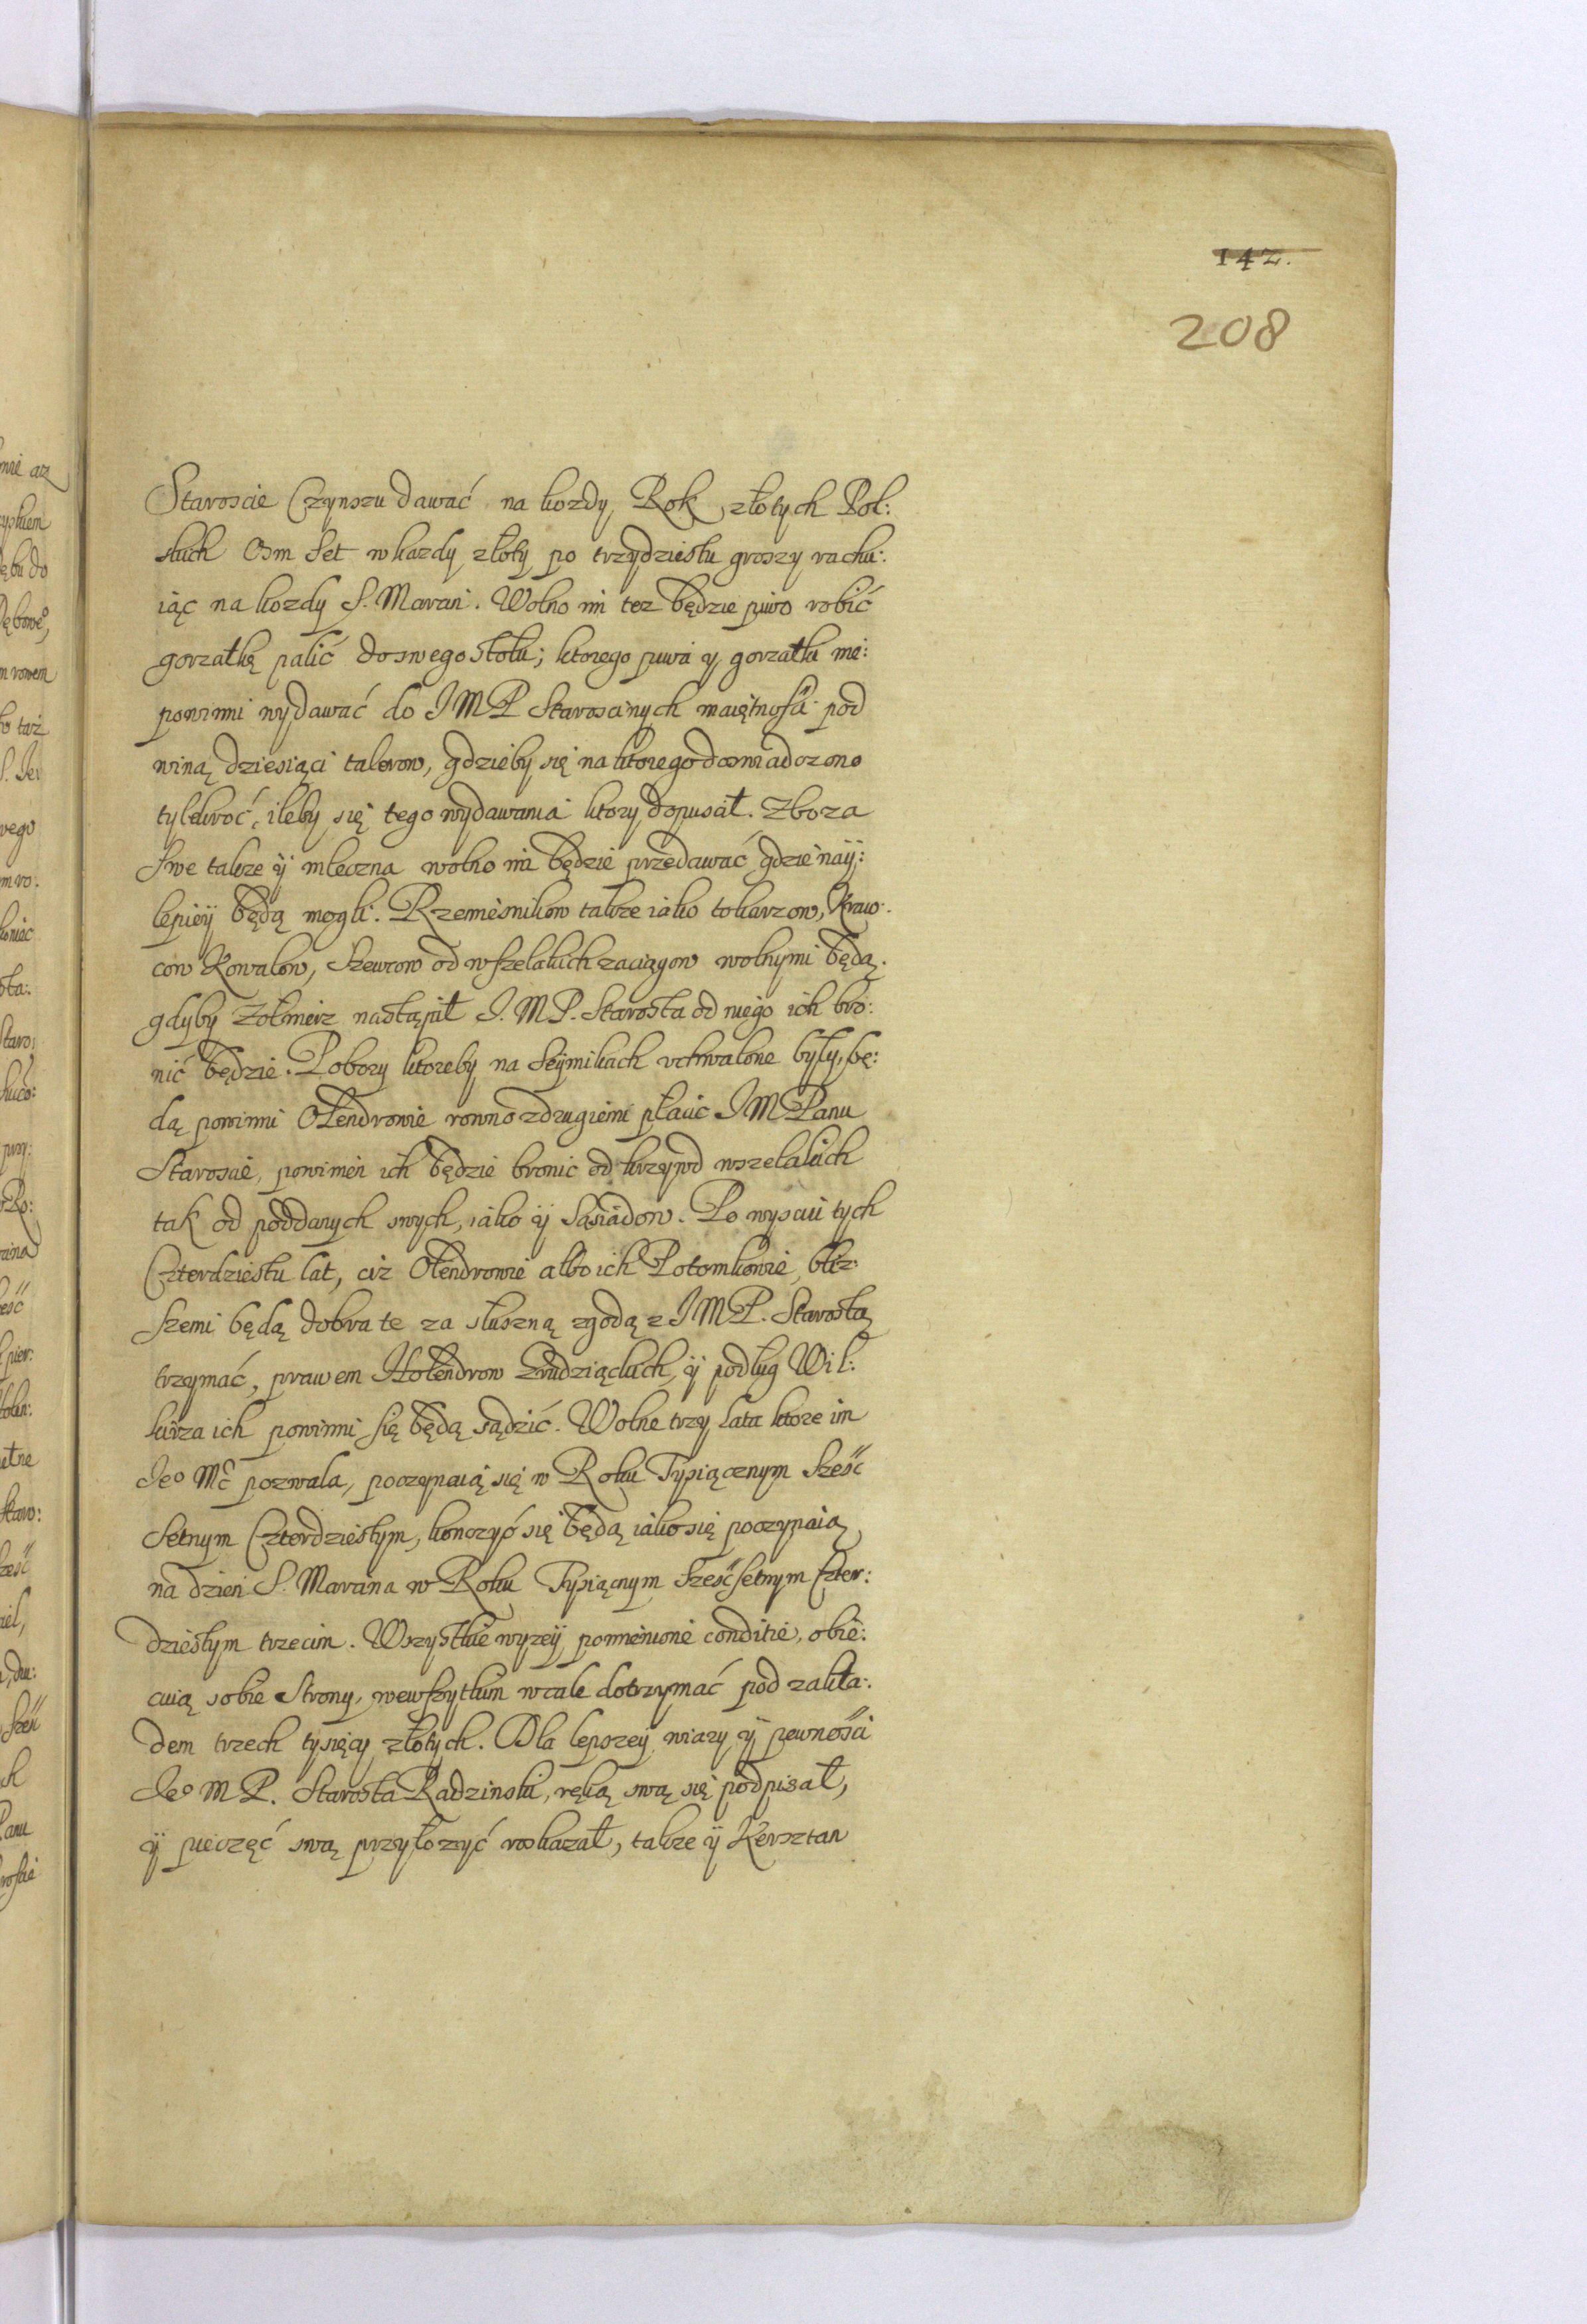 142.
208
Staroscie Czynszu dawać na kozdy Rok złotych Pol:
skich Osm Set w kazdy złoty po trzydziestu groszy rachu:
iąc na kozdy S. Marcin. Wolno im tez będzie piwo robić
gorzałkę palić do swego stołu; ktorego piwa y gorzałki nie:
powinni wydawać do IMP Staroscinych maiętnośći pod
winą dziesiąci talerow, gdzieby się na ktorego doswiadczono
tylekroć, ileby się tego wydawania ktory dopuscił. Zboza
Swe takze ÿ mleczna wolno im będzie przedawać gdzie naÿ:
lepieÿ będą mogli. Rzemiesnikow takze iako tokarzow, Kraw:
cow Kowalow, Szewcow od wszelakich zaciągow wolnymi będą.
gdyby Zołnierz nastąpił I. M P. Starosta od niego ich bro:
nić będzie. Pobory ktoreby na Seÿmikach vchwalone były, bę:
dą powinni Olendrowie rowno zdrugiemi płacic IM Panu
Staroscie, powinien ich będzie bronic od krzywd wszelakich
tak od poddanych swych, iako ÿ Sąsiadow. Po wysciu tych
Czterdziestu lat, ciz Olendrowie albo ich Potomkowie, bliz:
szemi będą dobra te za słuszną zgodą z IMP. Starostą
trzymać, prawem Holendrow Grudziąckich, ÿ podług Wil:
kirza ich powinni się będą sądzić. Wolne trzy lata ktore im
Jeo Mć pozwala, poczynaią się w Roku Tysiącznym Sześć
Setnym Czterdziestym, konczyć się będą iako się poczynaią
na dzien S. Marcina w Roku Tysiącnym Sześćsetnym Czter:
dziestym trzecim. Wszystkie wyzeÿ pomienione conditie, obie:
cuią sobie Strony, wewszytkim wcale dotrzymać pod zakła:
dem trzech tysięcy złotych. Dla lepszeÿ wiary ÿ pewnośći
Jeo M P. Starosta Radzinski, ręką swą się podpisał,
ÿ pieczęć swą przyłozyć roskazał, takze ÿ Kersztan